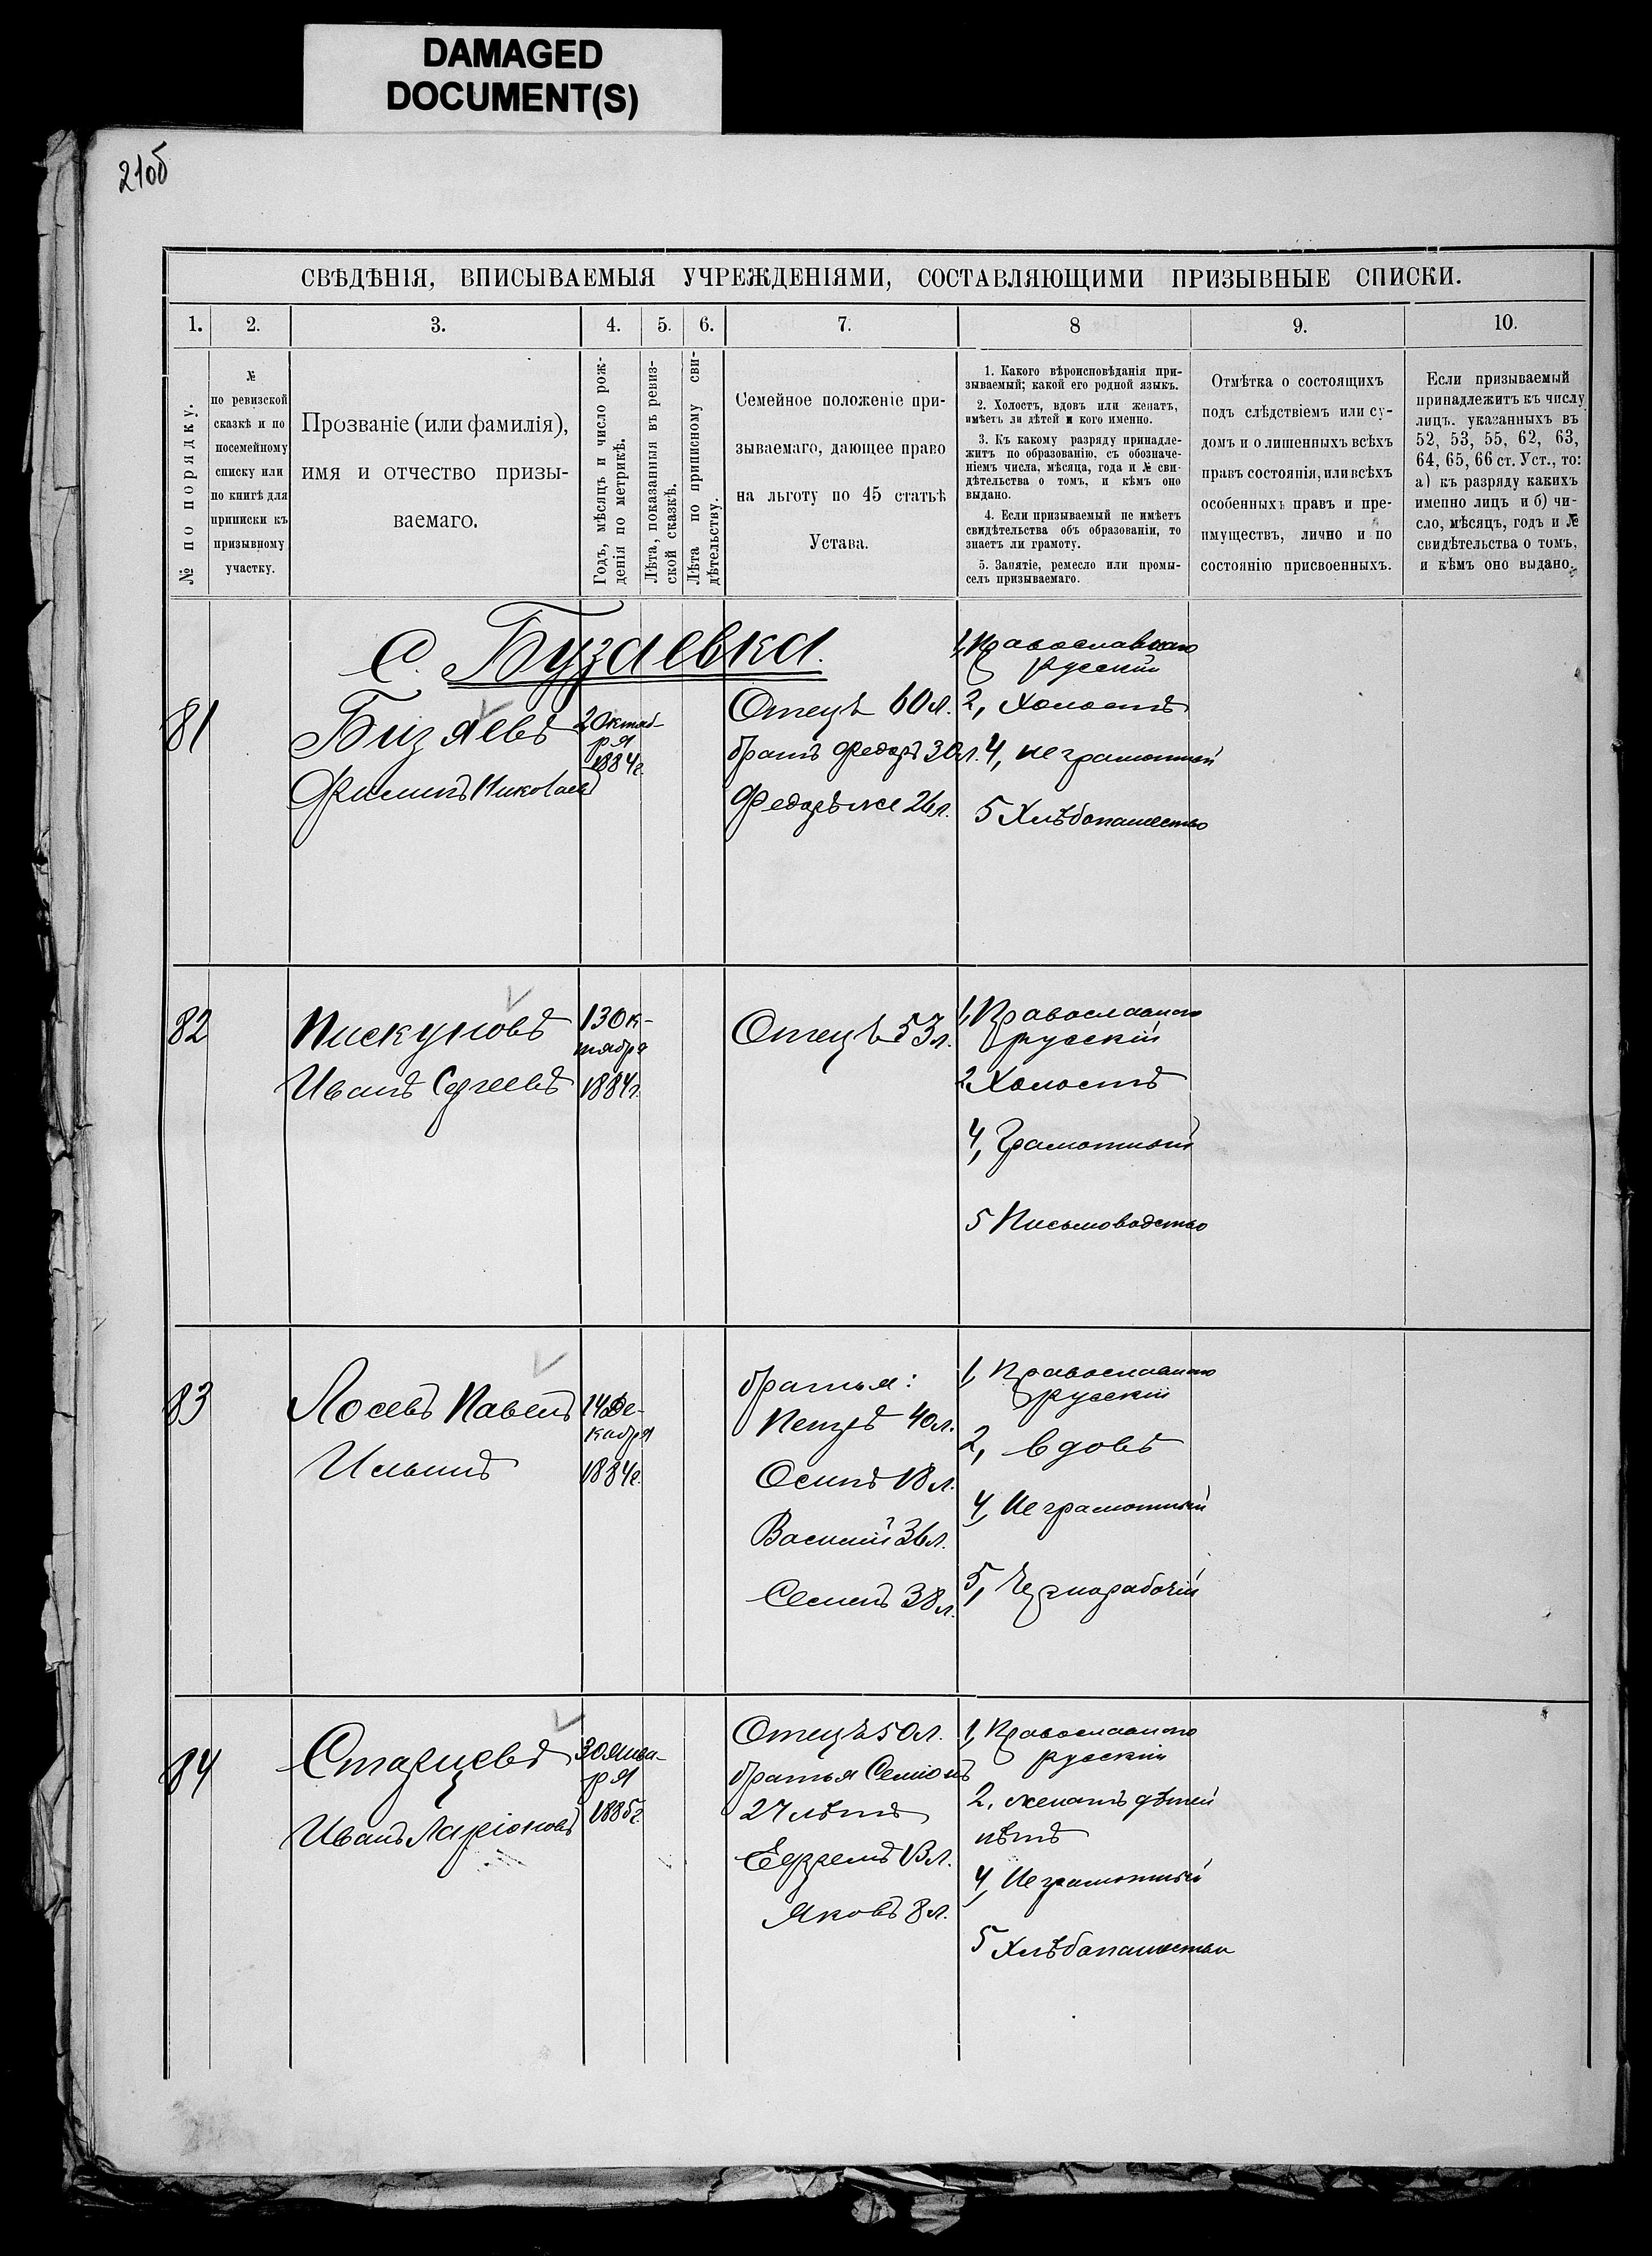 DAMAGED
DOCUMENT(S)
21об
СВѢДѢНІЯ, ВПИСЫВАЕМЫЯ УЧРЕЖДЕНІЯМИ, СОСТАВЛЯЮЩИМИ ПРИЗЫВНЫЕ СПИСКИ.
1.
2.
3.
4.
5.
6.
7.
8
9.
10.
№ по порядку.
№
по ревизской
сказкѣ и по
посемейному
списку или
по книгѣ для
приписки къ
призывному
участку.
Прозваніе (или фамилія),
имя и отчество призы-
ваемаго.
Годъ, мѣсяцъ и число рож-
денія по метрикѣ.
Лѣта, показанныя въ ревиз-
ской сказкѣ.
Лѣта по приписному сви-
дѣтельству.
Семейное положеніе при-
зываемаго, дающее право
на льготу по 45 статьѣ
Устава.
1. Какого вѣроисповѣданія при-
зываемый; какой его родной языкъ.
2. Холостъ, вдовъ или женатъ,
имѣетъ ли дѣтей и кого именно.
3. Къ какому разряду принадле-
житъ по образованію, съ обозначе-
ніемъ числа, мѣсяца, года и № сви-
дѣтельства о томъ, и кѣмъ оно
выдано.
4. Если призываемый не имѣетъ
свидѣтельства объ образованіи, то
знаетъ ли грамоту.
5. Занятіе, ремесло или промы-
селъ призываемаго.
Отмѣтка о состоящихъ
подъ слѣдствіемъ или су-
домъ и о лишенныхъ всѣхъ
правъ состоянія, или всѣхъ
особенныхъ правъ и пре-
имуществъ, лично и по
состоянію присвоенныхъ.
Если призываемый
принадлежитъ къ числу
лицъ. указанныхъ въ
52, 53, 55, 62, 63,
64, 65, 66 ст. Уст., то:
а) къ разряду какихъ
именно лицъ и б) чи-
сло, мѣсяцъ, годъ и №
свидѣтельства о томъ,
и кѣмъ оно выдано.
С. Бузаевка.
81
Бизяевъ
Филипъ Николаевъ
2 Октяб-
ря
1884г.
Отецъ 60 л.
братъ Федоръ 30 л.
Федоръ же 26 л.
1, Православнаго
русскій
2, Холостъ
4, не грамотный
5 Хлѣбопашество
82
Пискуновъ
Иванъ Сергеевъ
13 Ок-
тября
1884г.
Отецъ 53 л.
1, Православнаго
русскій
2 Холостъ
4, Грамотный
5 Письмоводство
83
Лосевъ Павелъ
Ильинъ
14 Де-
кабря
1884г.
братья:
Петръ 40 л.
Осипъ 18 л.
Василій 36 л.
Семенъ 38 л.
1, Православнаго
русскій
2, вдовъ
4, Не грамотный
5, Чернорабочій
84
Старцевъ
Иванъ Ларіоновъ
30 Янва-
ря
1885г.
Отецъ 50 л.
братья Семіонъ
27 лѣтъ
Ефремъ 13 л.
Яковъ 8 л.
1, Православнаго
русскій
2, женатъ дѣтей
нѣтъ
4, Не грамотный
5 Хлѣбопашество